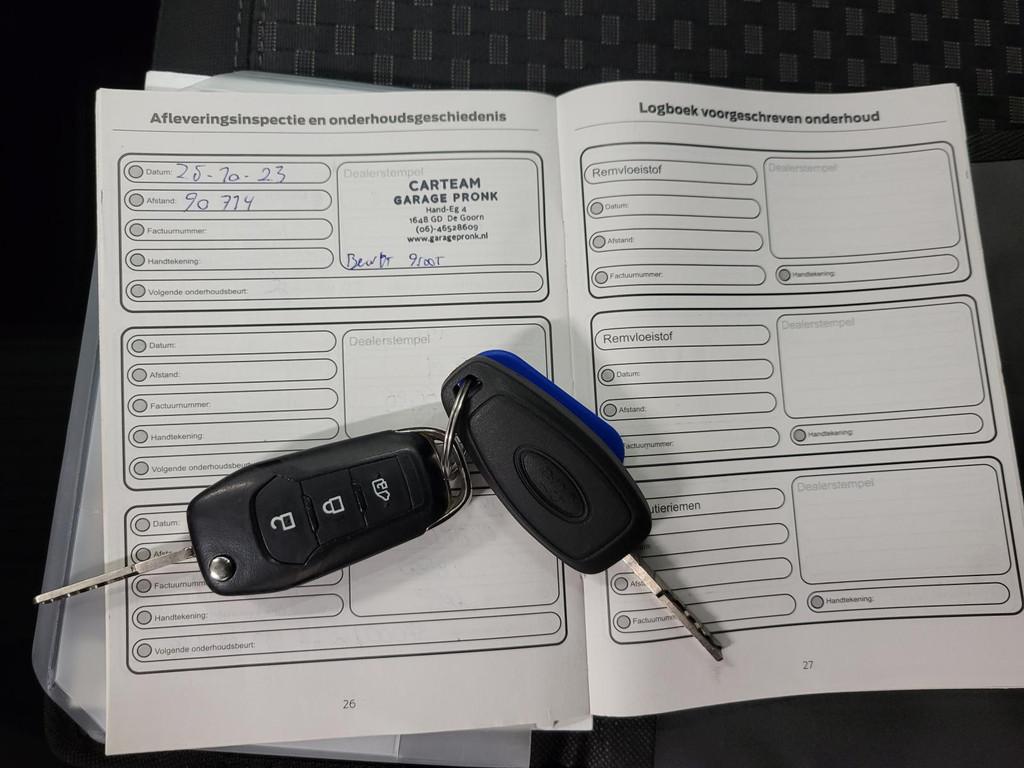 Afleveringsinspectie en onderhoudsgeschiedenis
Datum: 25-10-23
Afstand: 90 714
Factuurnummer:
Handtekening:
Volgende onderhoudsbeurt:
Dealerstempel
CARTEAM
GARAGE PRONK
Hand-Eg 4
1648 GD De Goorn
(06)-46528609
www.garagepronk.nl
Beurt groot
Datum:
Afstand:
Factuurnummer:
Handtekening:
Volgende onderhoudsbeurt
Dealerstempel
Datum:
Afst
Factuurnumm
Handtekening:
Volgende onderhoudsbeurt:
26
Logboek voorgeschreven onderhoud
Remvloeistof
Datum:
Afstand:
Factuurnummer:
Dealerstempel
Handtekening:
Remvloeistof
Datum:
Afstand:
Factuurnummer:
Dealerstempel
Handtekening:
utieriemen
Afst
Factuurnumm
Dealerstempel
Handtekening:
27